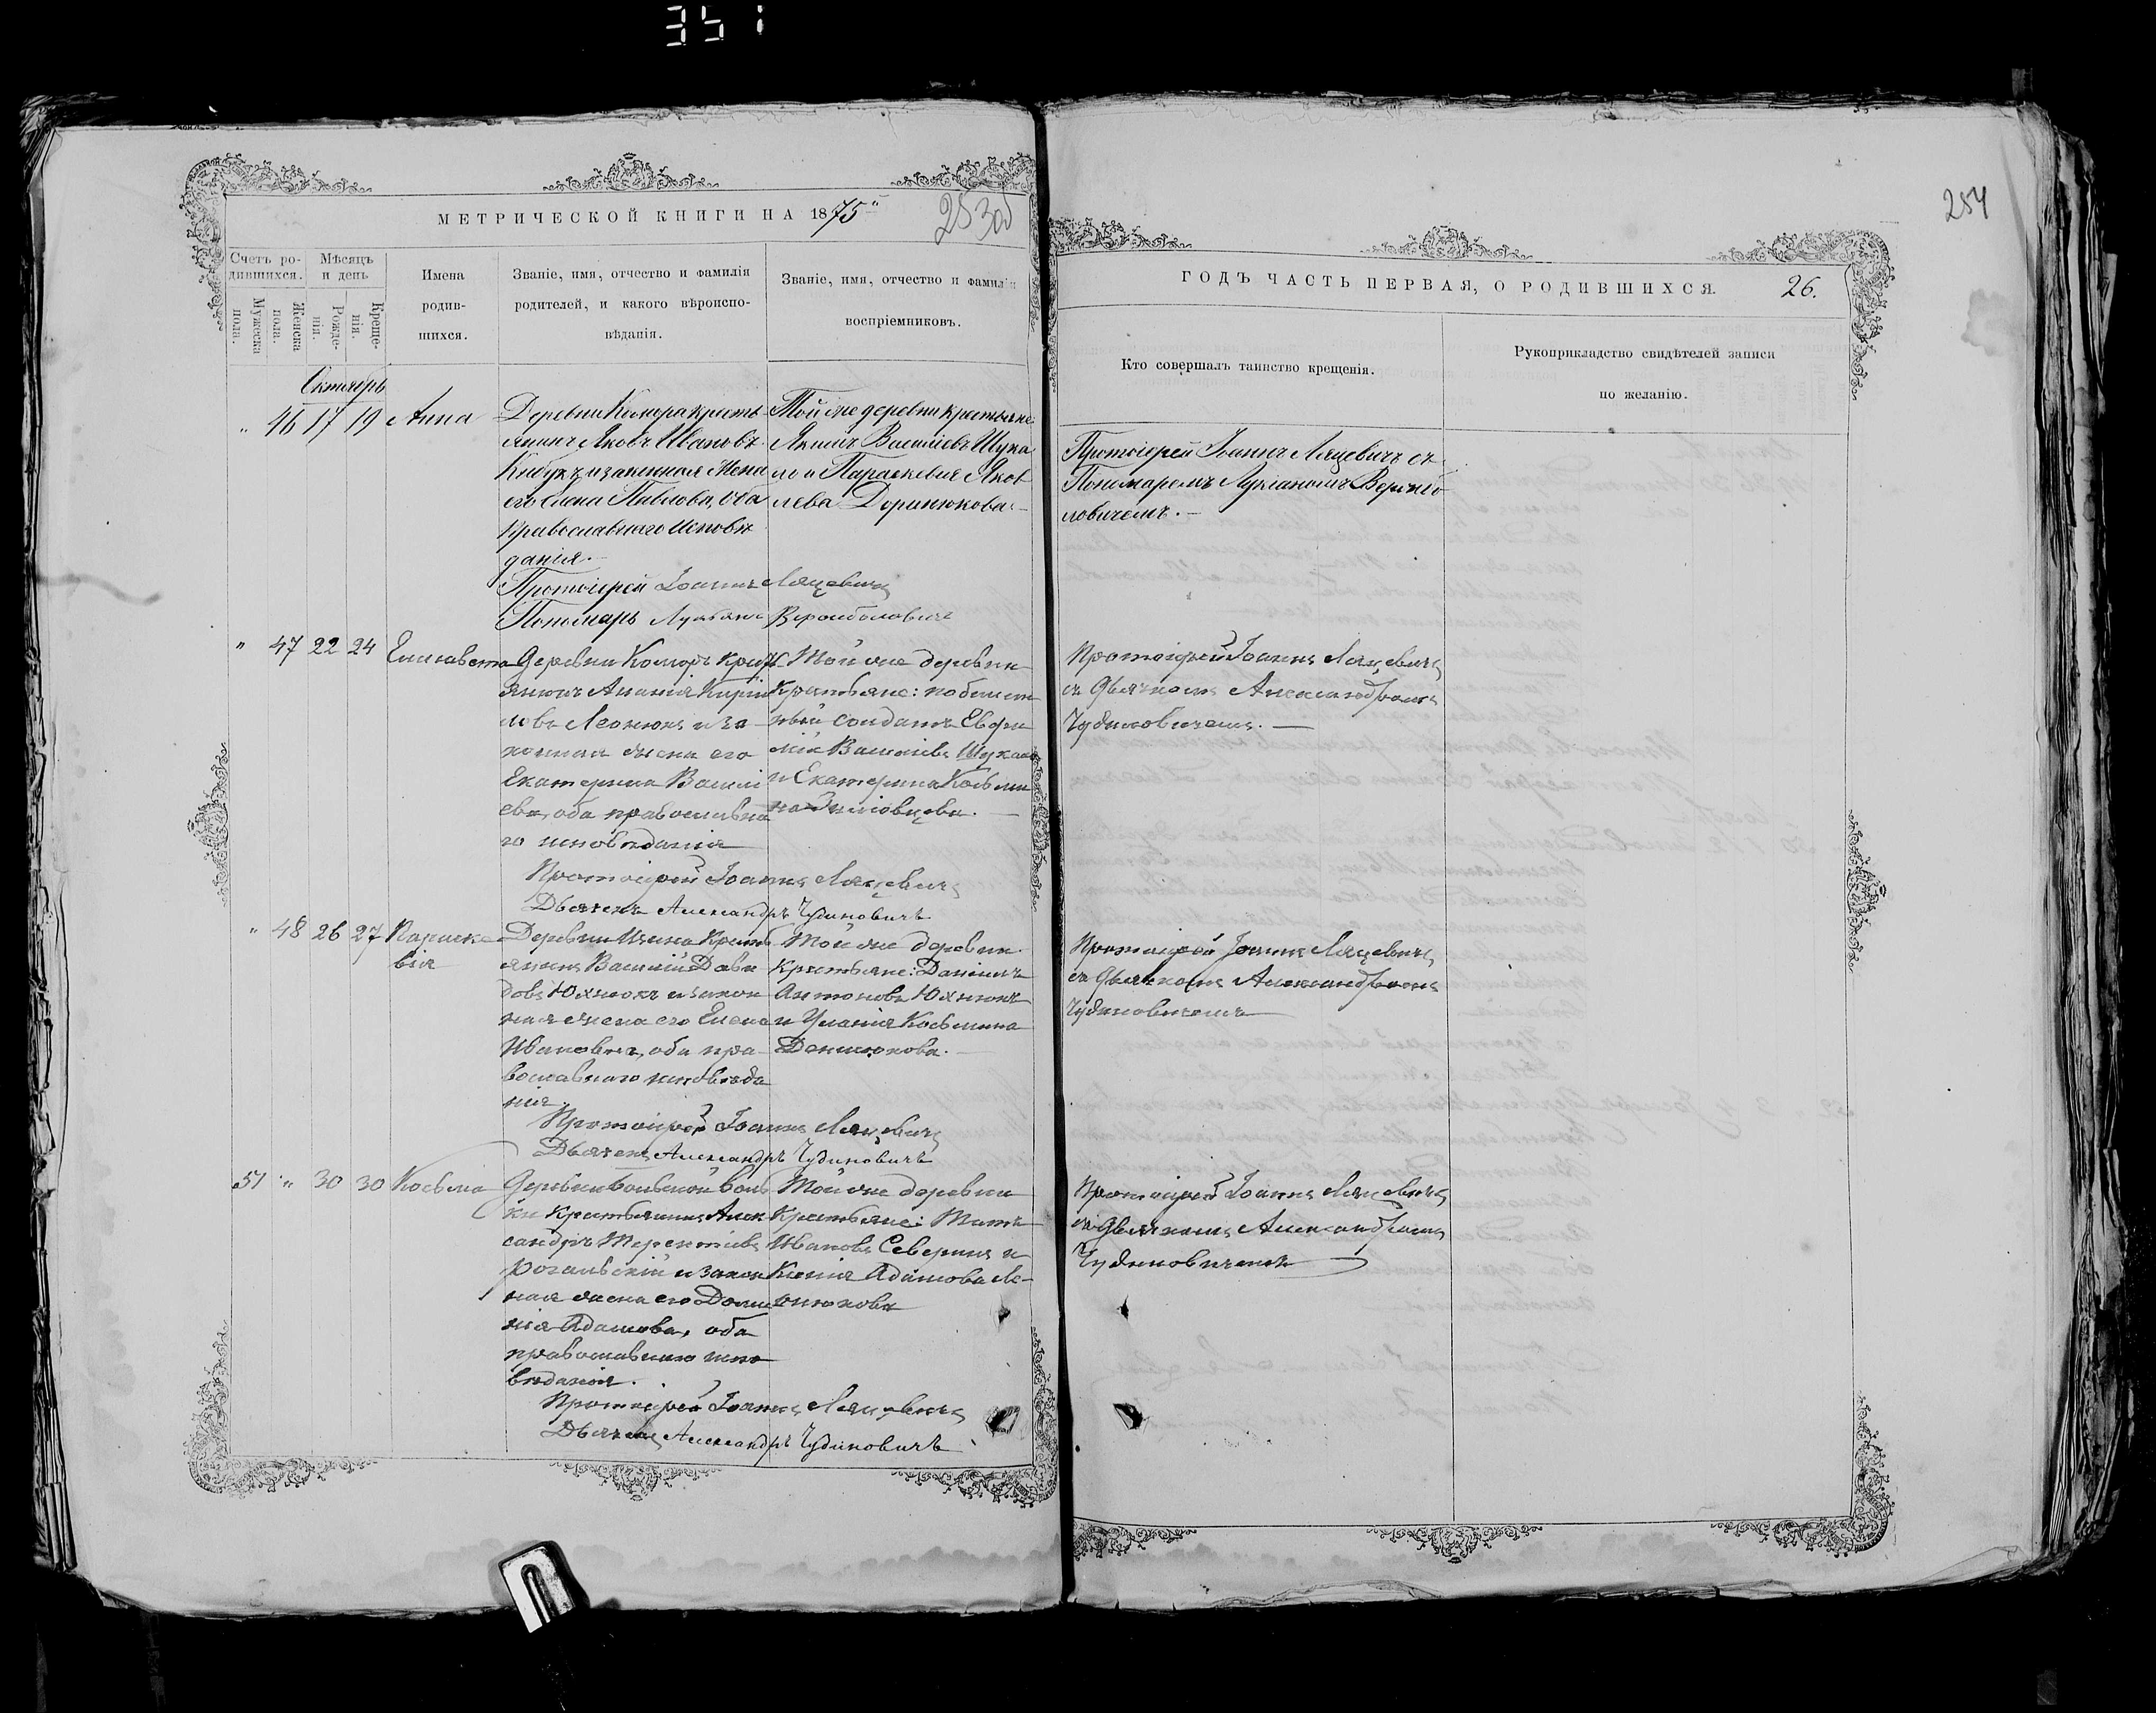 351
МЕТРИЧЕСКОЙ КНИГИ НА 1875
253об
Счетъ ро-
дившихся.
Мужеска
пола.
Женска
пола.
Мѣсяцъ
и день
Рожде-
нія.
Креще-
нія.
Имена
родив-
шихся.
Званіе, имя, отчество и фамилія
родителей, и какого вѣроиспо-
вѣданія.
Званіе, имя, отчество и фамилія
воспріемниковъ.
Октябрь
" 46 17 19 Анна
Деревни Комора кресть-
янинъ Яковъ Ивановъ
законная жена
его Елена Павлова, оба
православнаго исповѣ
данія.
Протоіерей Іоаннъ Ляцевичъ
Пономарь Лукіанъ
Той же деревни крестьяне:
Якимъ Васильевъ Шука
ло и Параскевія Яков
лева Доринюкова.
" 47 22 24 Елисавета
Деревни Коморъ крест
янинъ Ананія Кирил
ловъ Леонюкъ и за-
конная жена его
Екатерина Васильі
ева, оба православна
го исповѣданія
Протоіерей Іоаннъ Ляцевичъ
Дьячекъ Александръ Чудиновичъ
Той же деревни
Крестьяне:
солдатъ Евфи
мій Васильевъ Шукало
и Екатерина Косьми
на
" 48 26 27 Параске
вія
Деревни кресть
янинъ Василій Дави
довъ Юхнюкъ и закон
ная жена его Елена
Иванова, оба пра-
вославнаго исповѣда
нія.
Протоіерей Іоаннъ Ляцевичъ
Дьячекъ Александръ Чудиновичъ
Той же деревни
Крестьяне: Даніилъ
Антоновъ Юхнюкъ
и Уліанія Косьмина
Денисюкова.
51 " 30 30 Косьма
Деревни
ки крестьянинъ Алек
сандръ Терентіевъ
Рогальскій и закон
ная жена его Доми
нія Адамова, оба
православнаго испо
вѣданія.
Протоіерей Іоаннъ Ляцевичъ
Дьячекъ Александръ Чудиновичъ
Той же деревни
Крестьяне: Титъ
Ивановъ Северинъ и
Ксенія Адамова Ле-
онюкова
254
ГОДЪ ЧАСТЬ ПЕРВАЯ, О РОДИВШИХСЯ. 26.
Кто совершалъ таинство крещенія.
Рукоприкладство свидѣтелей записи
по желанію.
Протоіерей Іоаннъ Ляцевичъ съ
Пономаремъ Лукіаномъ
Протоіерей Іоаннъ Ляцевичъ
съ Дьячкомъ Александромъ
Чудиновичемъ.
Протоіерей Іоаннъ Ляцевичъ
съ Дьячкомъ Александромъ
Чудиновичемъ
Протоіерей Іоаннъ Ляцевичъ
съ Дьячкомъ Александромъ
Чудиновичемъ